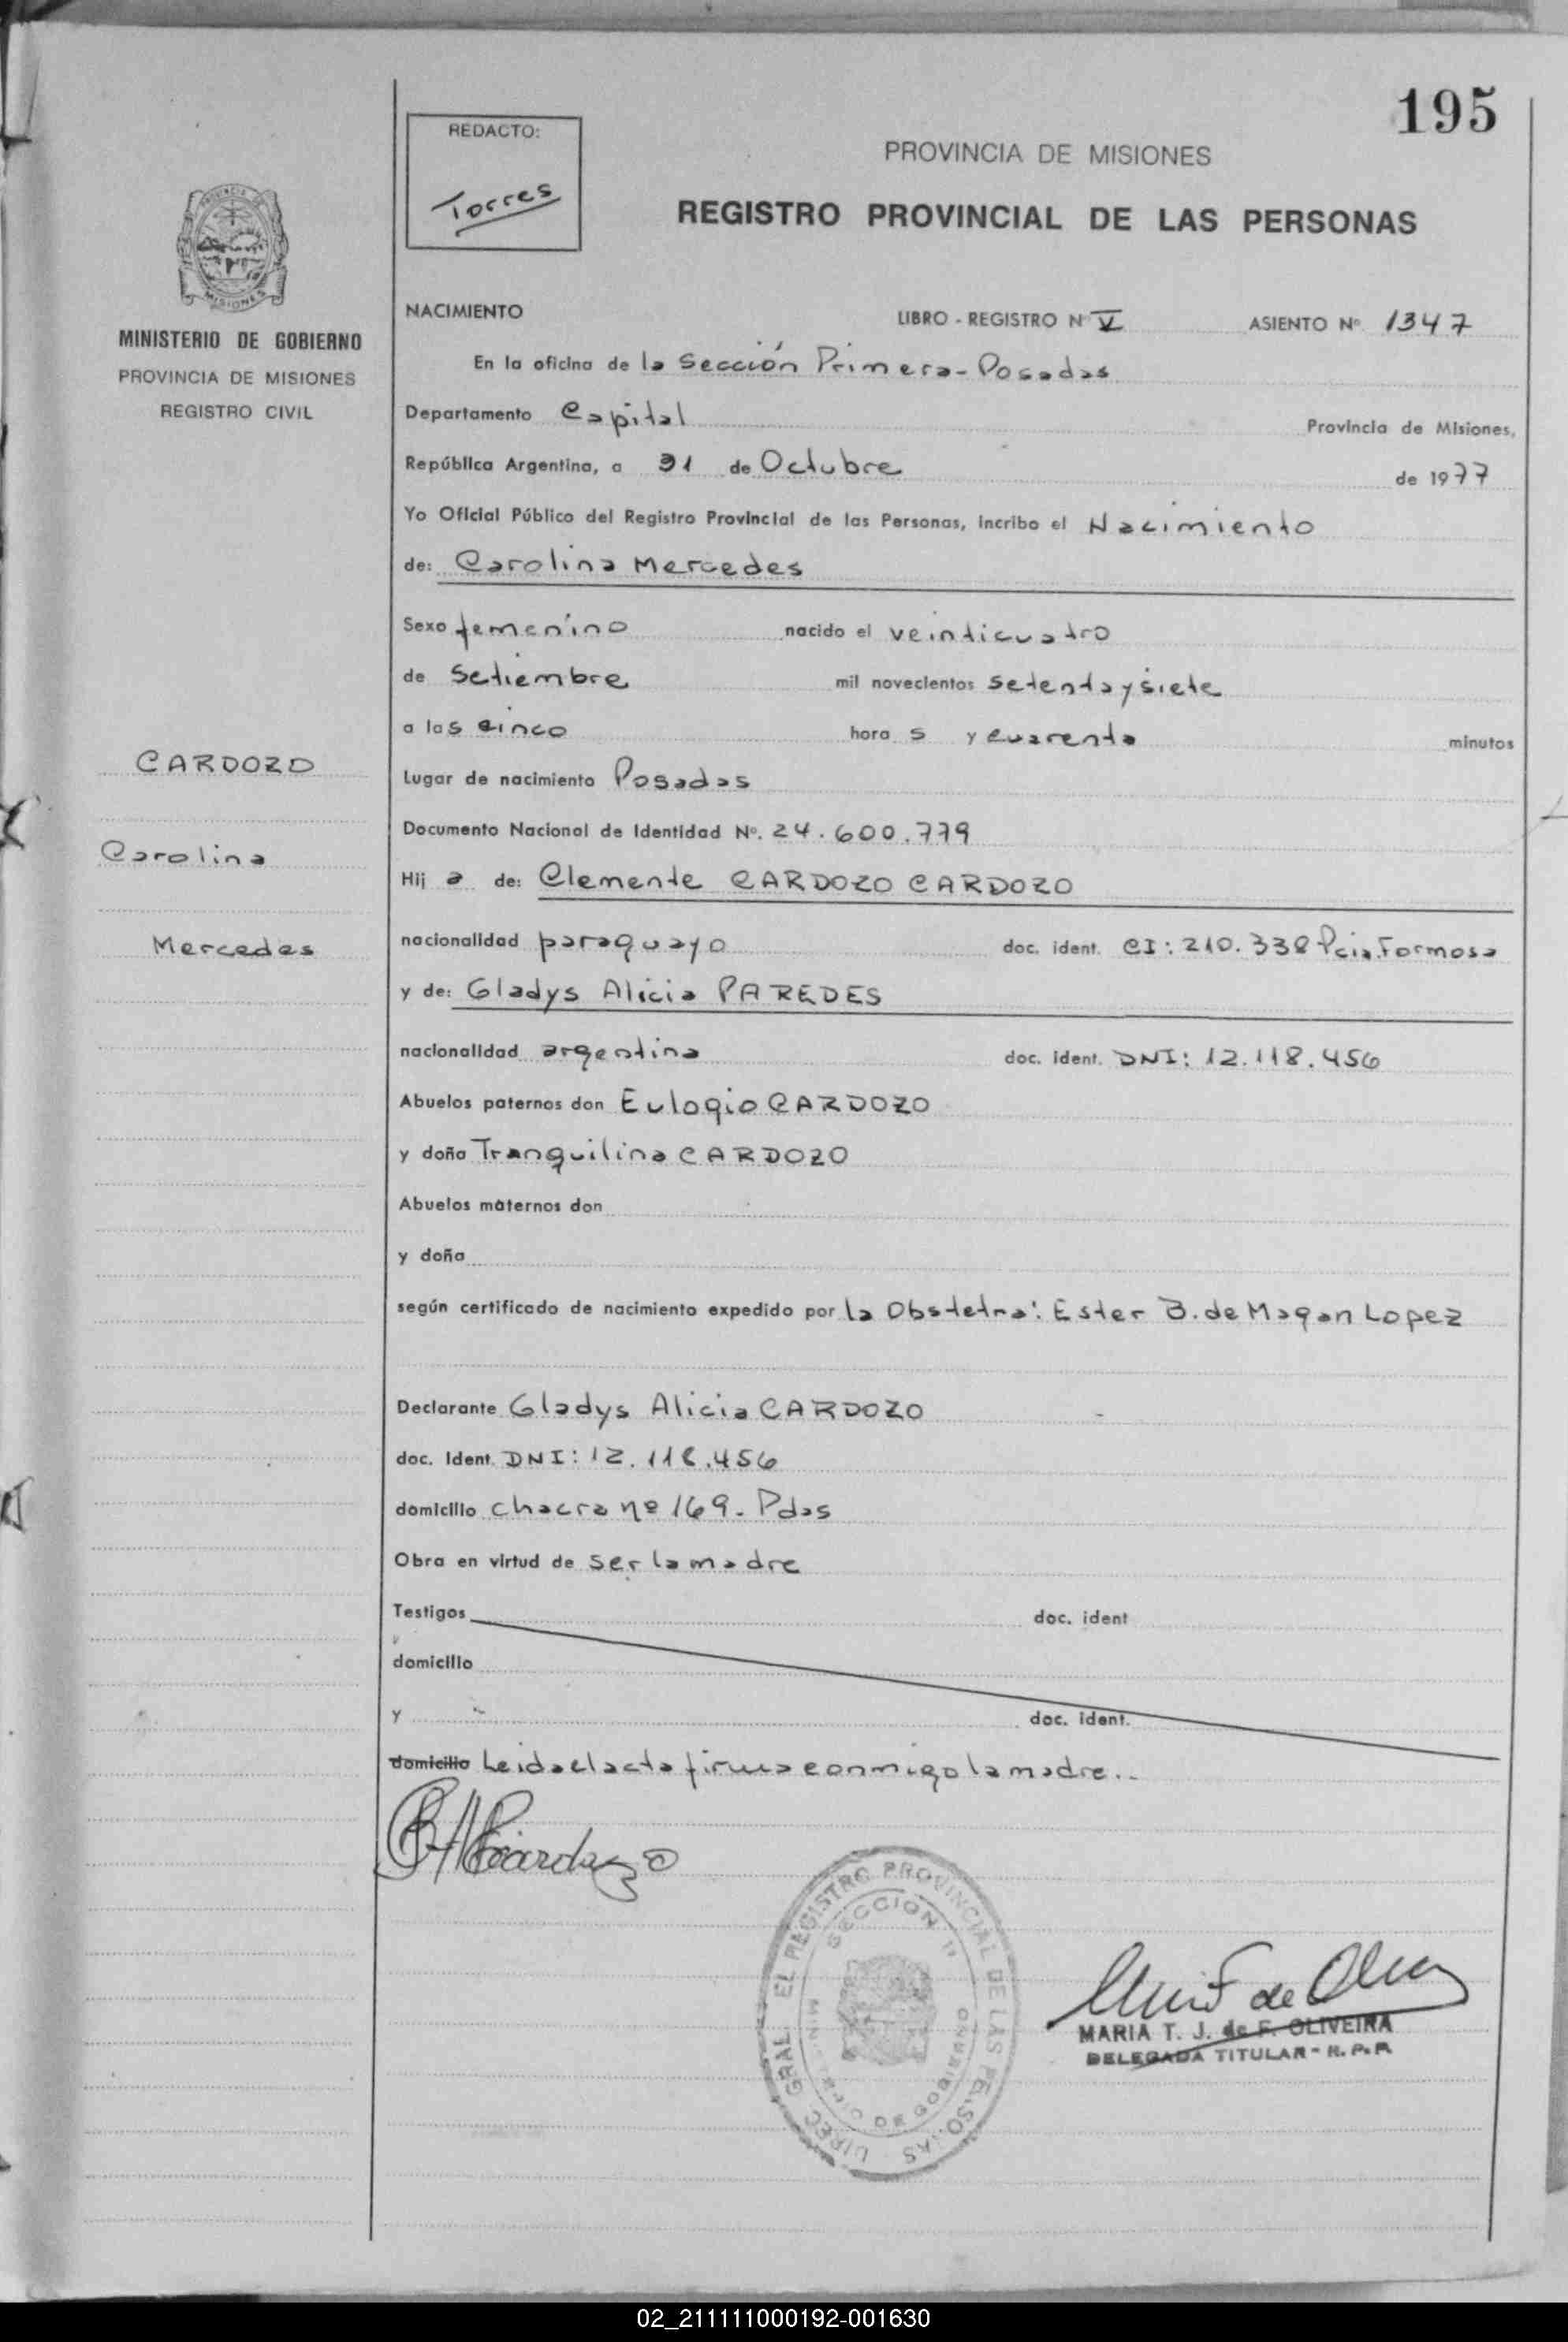 195
REDACTO:
Torres
PROVINCIA DE MISIONES
REGISTRO PROVINCIAL DE LAS PERSONAS
MISIONES
MINISTERIO DE GOBIERNO
PROVINCIA DE MISIONES
REGISTRO CIVIL
CARDOZO
Carolina
Mercedes
NACIMIENTO LIBRO - REGISTRO Nº V ASIENTO Nº 1347
En la oficina de la Sección Primera - Posadas
Departamento Capital Provincia de Misiones,
República Argentina, a 31 de Octubre de 1977
Yo Oficial Público del Registro Provincial de las Personas, incribo el Nacimiento
de: Carolina Mercedes
Sexo femenino nacido el veinticuatro
de Setiembre mil novecientos setenta y siete
a las cinco horas y cuarenta minutos
Lugar de nacimiento Posadas
Documento Nacional de Identidad Nº. 24.600.779
Hija de: Clemente CARDOZO CARDOZO
nacionalidad paraguayo doc. ident. CI: 210.338 Pcia. Formosa
y de: Gladys Alicia PAREDES
nacionalidad argentina doc. ident. DNI: 12.118.456
Abuelos paternos don Eulogio CARDOZO
y doña Tranquilina CARDOZO
Abuelos maternos don
y doña
según certificado de nacimiento expedido por la Obstetra: Ester B. de Magan Lopez
Declarante Gladys Alicia CARDOZO
doc. Ident. DNI: 12.118.456
domicilio chacra nº 169 - Pdas
Obra en virtud de ser la madre
Testigos doc. ident
domicilio
y doc. ident.
domicilio Leida el acta firma conmigo la madre..
Cardozo
EL REGISTRO PROVINCIAL DE LAS PERSONAS DIREC. GRAL.
SECCION 1ª
DE GOBIERNO
de Oliveira
MARIA T. J. de F. OLIVEIRA
DELEGADA TITULAR - R. P. P.
02_211111000192-001630